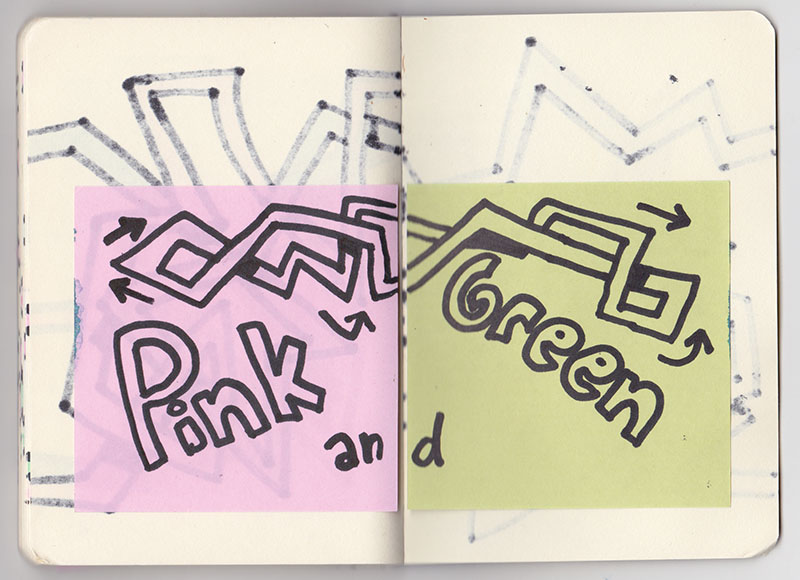 Pink
and
Green